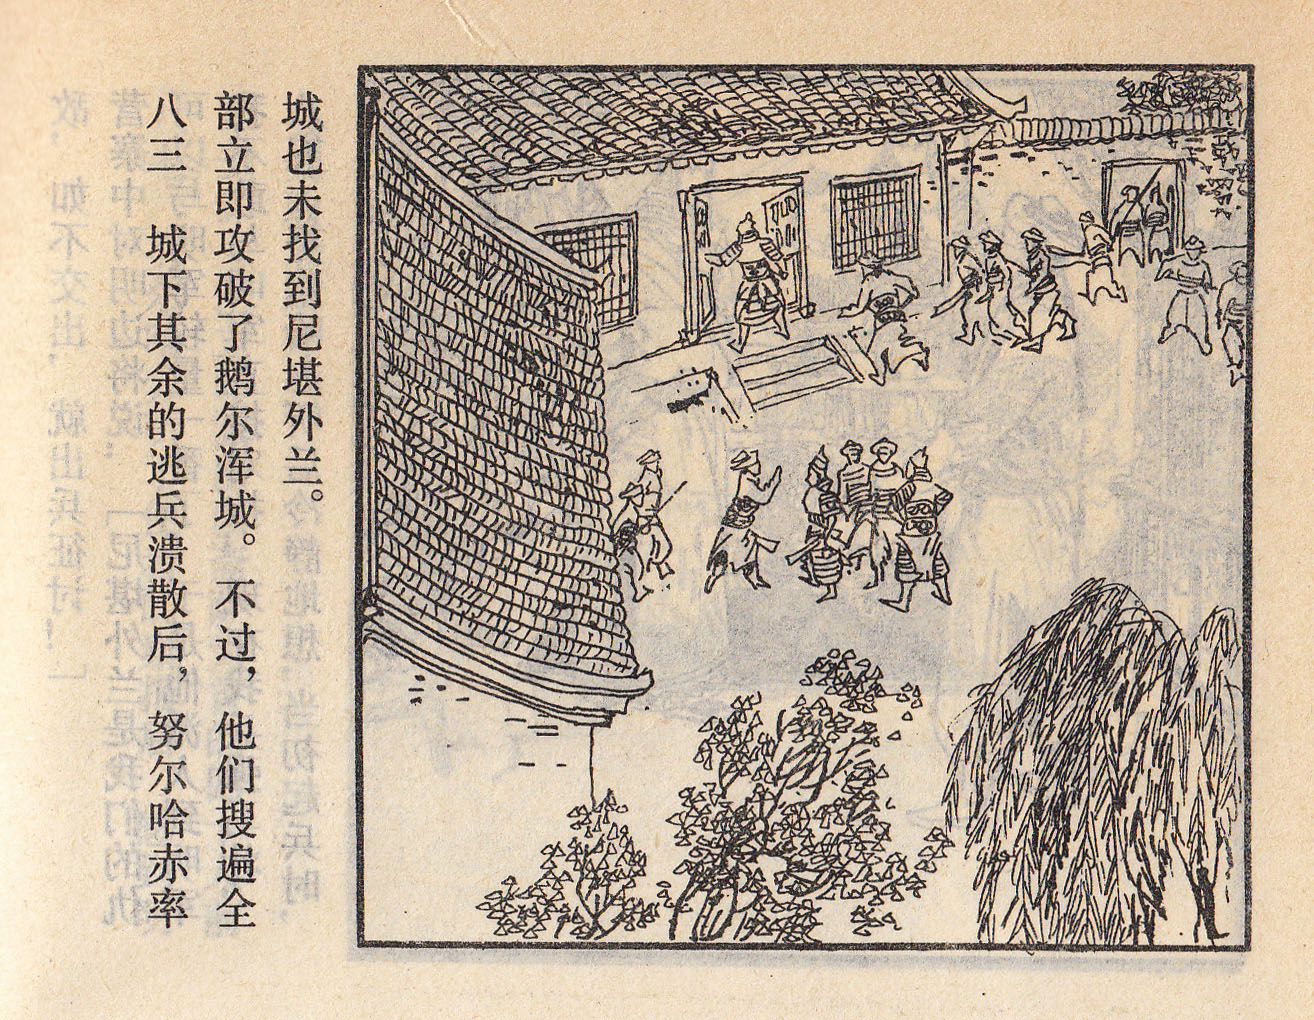 八三　城下其余的逃兵溃散后，努尔哈赤率
部立即攻破了鹅尔浑城。不过，他们搜遍全
城也未找到尼堪外兰。